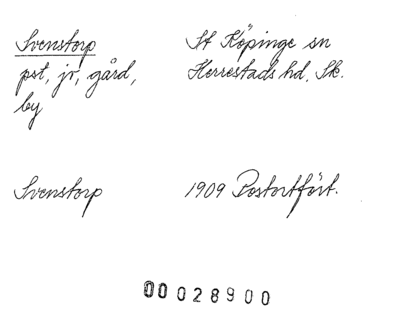 Svenstorp St Köpinge sn
pst, jv, gård, Herrestads hd, Sk.
by
Svenstorp 1909 Postortfört.
00028900